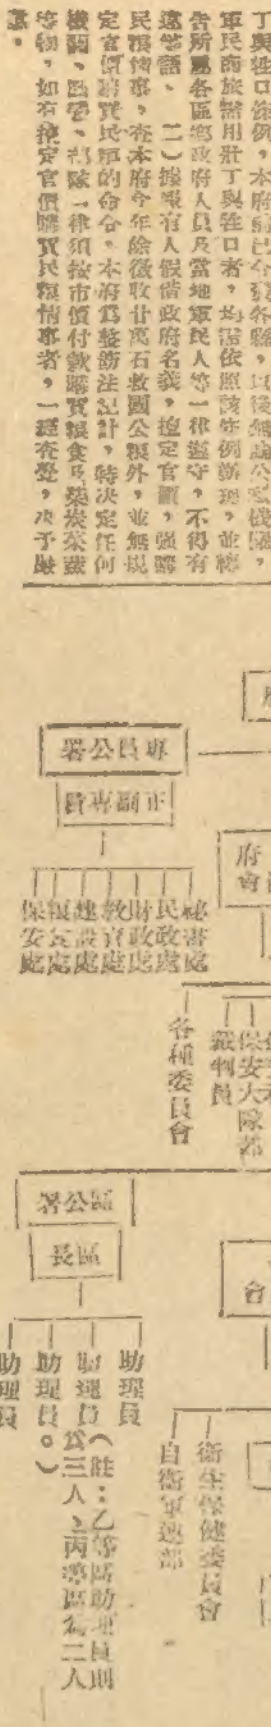 丁與牲口條例，本府前已令發各縣，以後無論公務機關，
軍民商旅需用壯丁與牲口者，均需依照該條例辦理，並轉
告所屬各區鄉政府人員及當地軍民人等一律遵守，不得有
違等語、　二）據報有人假借政府名義，擅定官價，強購
民糧情事，查本府今年除徵收廿萬石救國公糧外，並無規
定官價購買民糧的命令。本府爲整飭法紀計，特決定任何
機關、區營、部隊一律須按市價付款購買糧食及柴炭菜蔬
等物，如有擅定官價購買民糧情事者，一經查覺，决予嚴
專員公署
正副專員
秘書處
民政處
財政處
教育處
建設處
糧食處
保安處
府
會
保安大隊部
裁判員
各種委員會
區公署
區長
助理員
助理員
助理員
助理員
（註：乙等區助理員則
爲三人、丙等區爲二人
。）
會
衛生保健委員會
自衛軍連部